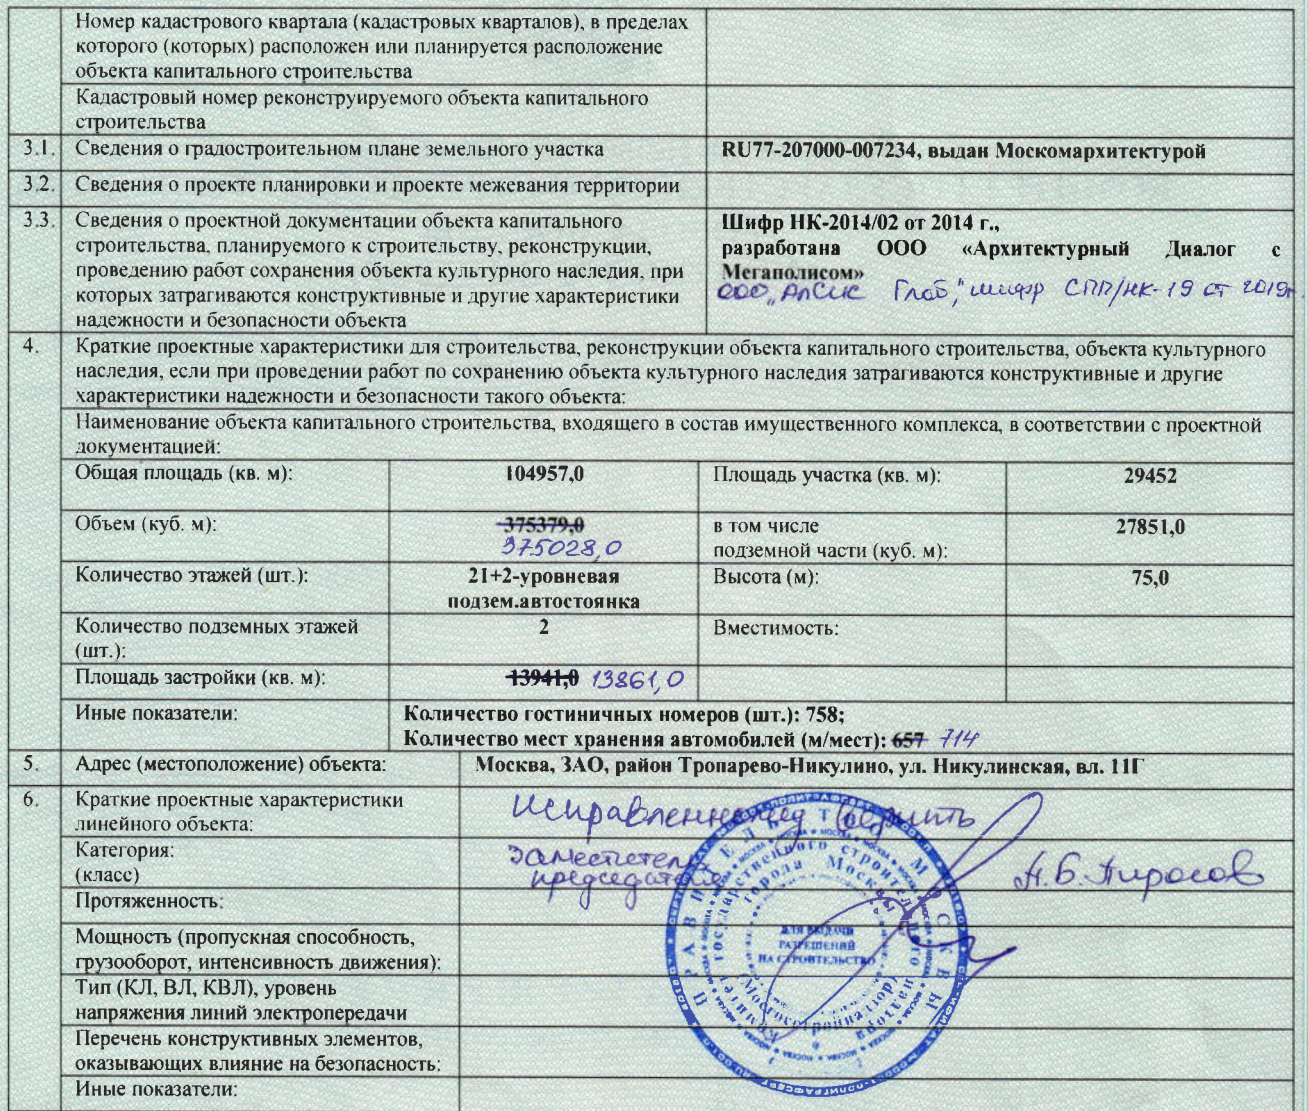 Номер кадастрового квартала (кадастровых кварталов), в пределах
которого (которых) расположен или планируется расположение
объекта капитального строительства
Кадастровый номер реконструируемого объекта капитального
строительства
3.1. Сведения о градостроительном плане земельного участка RU77-207000-007234, выдан Москомархитектурой
3.2. Сведения о проекте планировки и проекте межевания территории
3.3. Сведения о проектной документации объекта капитального
строительства, планируемого к строительству, реконструкции,
проведению работ сохранения объекта культурного наследия, при
которых затрагиваются конструктивные и другие характеристики
надежности и безопасности объекта
Шифр НК-2014/02 от 2014 г.,
разработана ООО «Архитектурный Диалог с
Мегаполисом»
ООО „АпСис Глаб," шифр СПП/НК-19 от 2019г.
4. Краткие проектные характеристики для строительства, реконструкции объекта капитального строительства, объекта культурного
наследия, если при проведении работ по сохранению объекта культурного наследия затрагиваются конструктивные и другие
характеристики надежности и безопасности такого объекта:
Наименование объекта капитального строительства, входящего в состав имущественного комплекса, в соответствии с проектной
документацией:
Общая площадь (кв. м): 104957,0 Площадь участка (кв. м): 29452
Объем (куб. м): 375379,0 в том числе 27851,0
375028,0 подземной части (куб. м):
Количество этажей (шт.): 21+2-уровневая Высота (м): 75,0
подзем.автостоянка
Количество подземных этажей 2 Вместимость:
(шт.):
Площадь застройки (кв. м): 13941,0 13861,0
Иные показатели: Количество гостиничных номеров (шт.): 758;
Количество мест хранения автомобилей (м/мест): 657 714
5. Адрес (местоположение) объекта: Москва, ЗАО, район Тропарево-Никулино, ул. Никулинская, вл. 11Г
6. Краткие проектные характеристики
линейного объекта:
Исправленному верить
Категория:
(класс)
Заместитель
председателя
А.Б. Пирогов
Протяженность:
Мощность (пропускная способность,
грузооборот, интенсивность движения):
Тип (КЛ, ВЛ, КВЛ), уровень
напряжения линий электропередачи
Перечень конструктивных элементов,
оказывающих влияние на безопасность:
Иные показатели:
ПРАВИТЕЛЬСТВО МОСКВЫ
Комитет государственного строительного надзора
города Москвы
(Мосгосстройнадзор)
ДЛЯ ВЫДАЧИ
РАЗРЕШЕНИЙ
НА СТРОИТЕЛЬСТВО